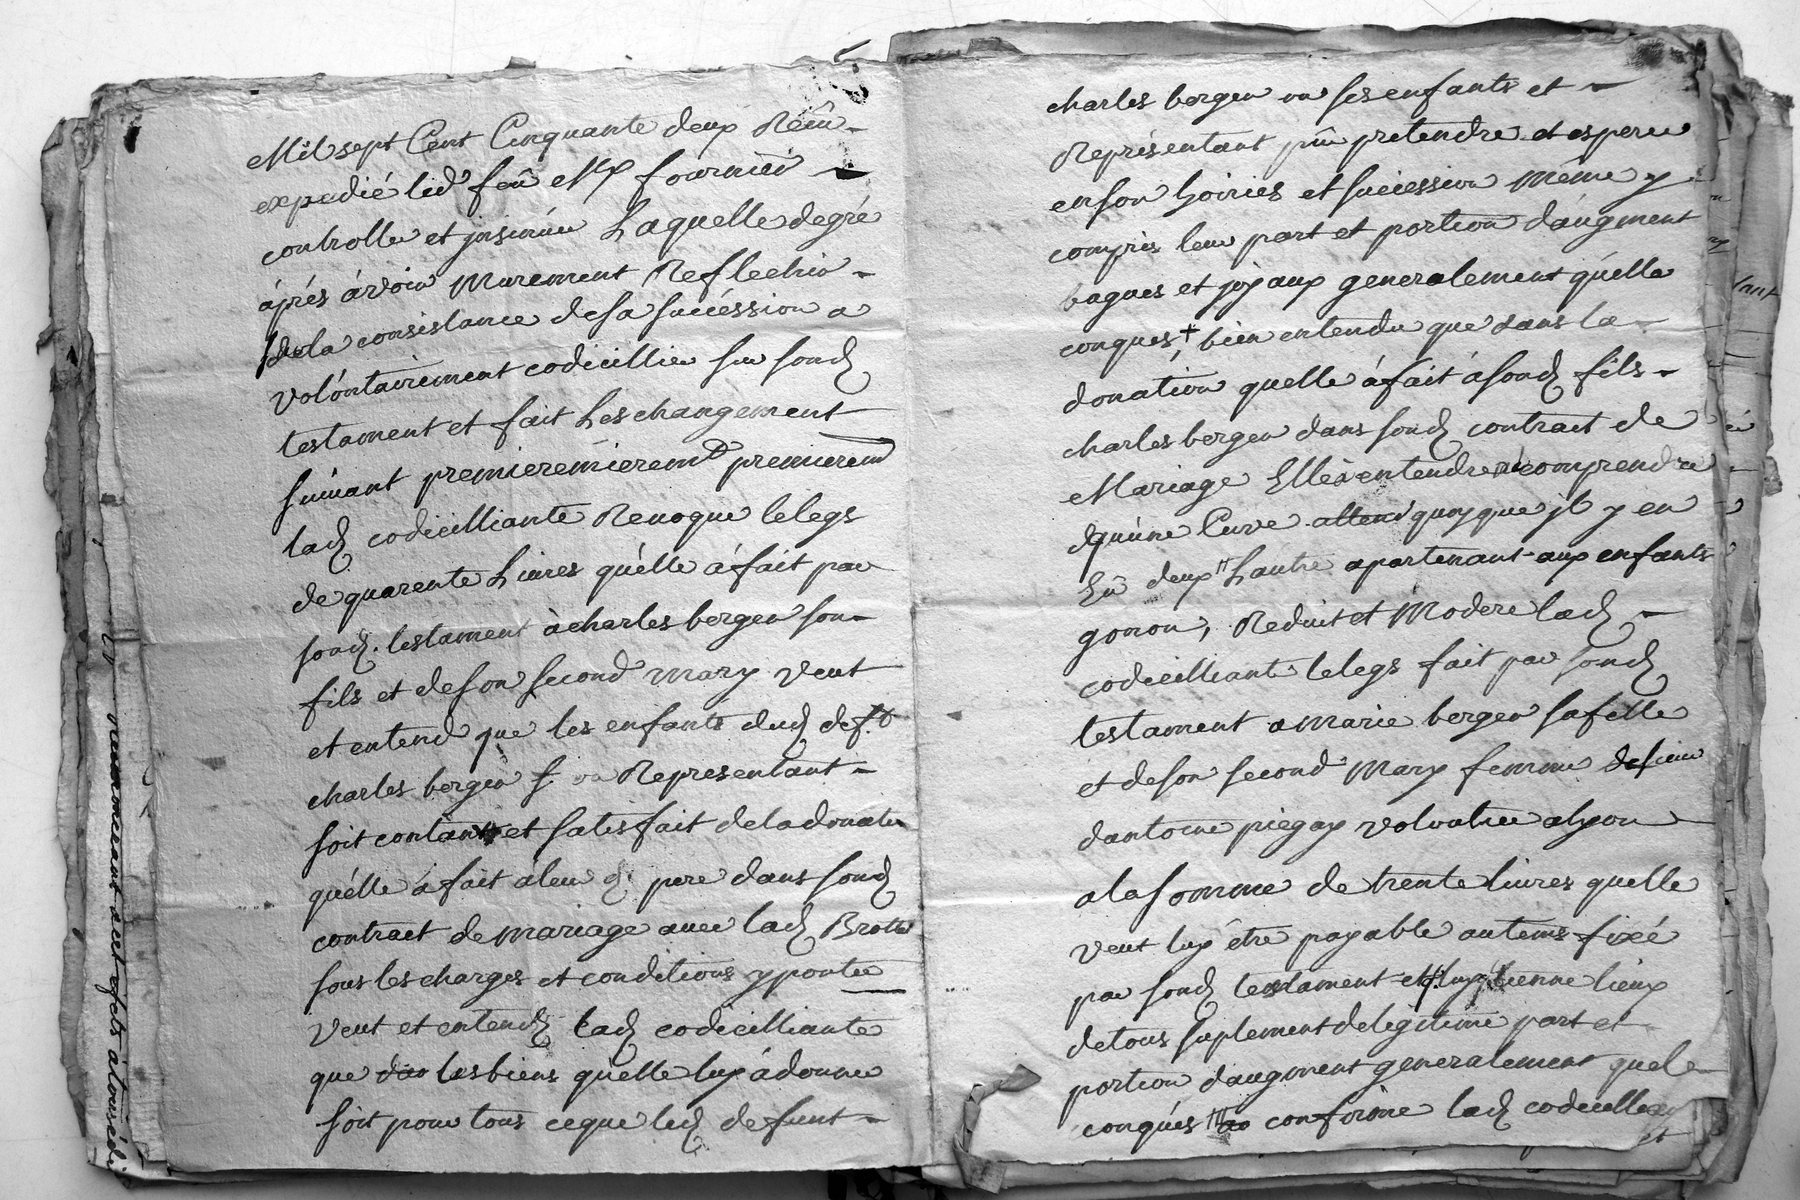 Mil sept Cent Cinquante deux Reçû
expedié led feû Me fournier
controllé et jnsinüé Laquelle de gré
áprés ávoir Murement Reflechir
de la consistance de sa succéssion a
volontairement codicillier sur sond
testament et fait Les changement
suivant premierémieremt premierem
lad codicilliante Revoque le legs
de quarente Livres qu'elle á fait par
sond. testament à charles berger son
fils et de son second mary veut
et entend que les enfants dud deft
charles berger ou Representant
soit contant et satisfait de la donater
qu'elle á fait á leur d. pere dans sond
contract de mariage avec lad Brotte
sous les charges et conditions y portée
veut et entend lad codicilliante
que les biens qu'elle luy á donné
soit pour tous ce que led defunt
charles berger ou ses enfants et
Représentant pûr pretendre et esperer
en son hoiries et succession méme y
compris leur part et portion d'augment
bagues et joyaux generalement qu'elle
conques + bien entendu que dans la
donation quelle á fait á sond fils
charles berger dans sond contract de
Mariage Elle entendre comprendre
qu'une Cuve attend quoyque jl y en
Eû deux "L'autre apartenant aux enfants
gonon, Reduit et Modere lad
codicilliante le legs fait par sond
testament a Marie berger sa fille
et de son second Mary femme de sieur
dantoine piegay voloutier a lyon
a la somme de trente livres quelle
veut luy étre payable au tems fixé
par sond testament et luy tienne lieux
de tous suplement de legitime part et
portion d'augment generalement quel
conqués conforme lad codicille